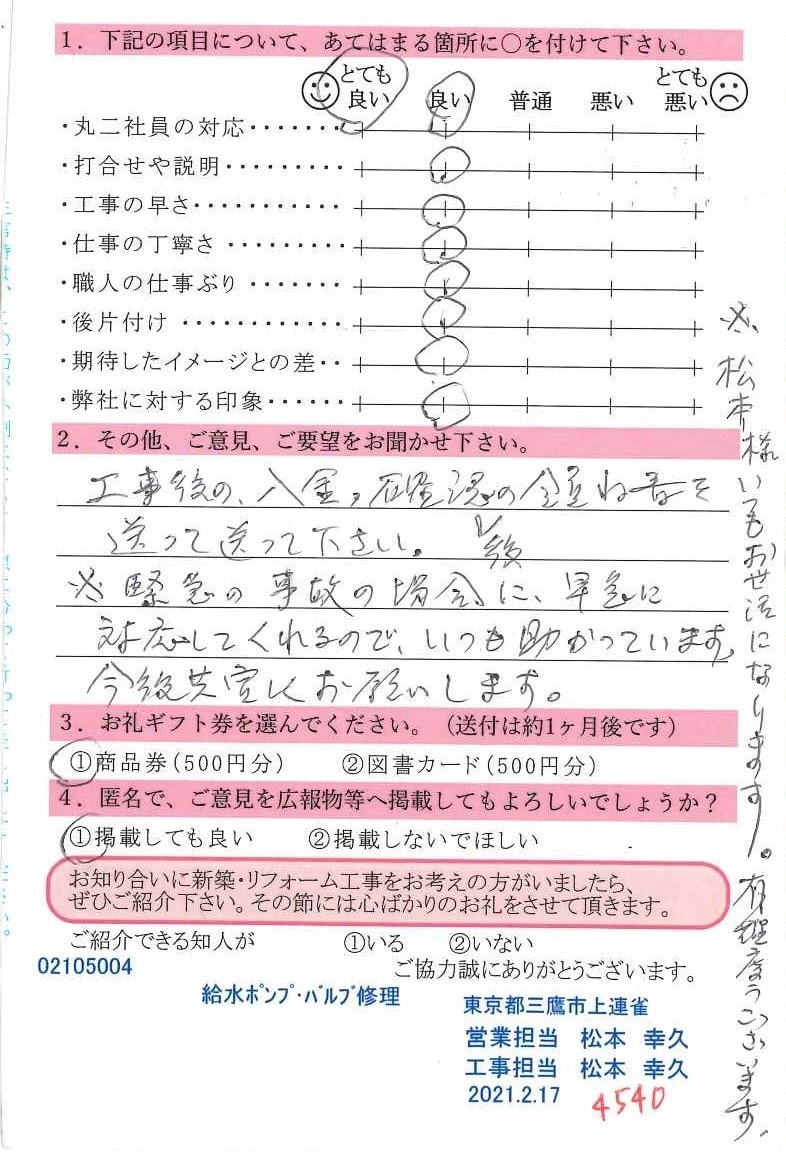 1. 下記の項目について、あてはまる箇所に○を付けて下さい。
とても良い 良い 普通 悪い とても悪い
・丸二社員の対応・・・・・・・
・打合せや説明・・・・・・・・・
・工事の早さ・・・・・・・・・・・
・仕事の丁寧さ・・・・・・・・・
・職人の仕事ぶり・・・・・・・
・後片付け・・・・・・・・・・・・
・期待したイメージとの差・・
・弊社に対する印象・・・・・・
2. その他、ご意見、ご要望をお聞かせ下さい。
工事後の、入金、確認の
送って送って下さい。
※緊急の事故の場合に、早急に
対応してくれるので、いつも助かっています。
今後共宜しくお願いします。
※、松本様いつもお世話になります。有難度うございます。
3. お礼ギフト券を選んでください。（送付は約1ヶ月後です）
①商品券（500円分） ②図書カード（500円分）
4. 匿名で、ご意見を広報物等へ掲載してもよろしいでしょうか？
①掲載しても良い ②掲載しないでほしい
お知り合いに新築・リフォーム工事をお考えの方がいましたら、
ぜひご紹介下さい。その節には心ばかりのお礼をさせて頂きます。
ご紹介できる知人が ①いる ②いない
02105004 ご協力誠にありがとうございます。
給水ﾎﾟﾝﾌﾟ・ﾊﾞﾙﾌﾞ修理
東京都三鷹市上連雀
営業担当 松本 幸久
工事担当 松本 幸久
2021.2.17
4540